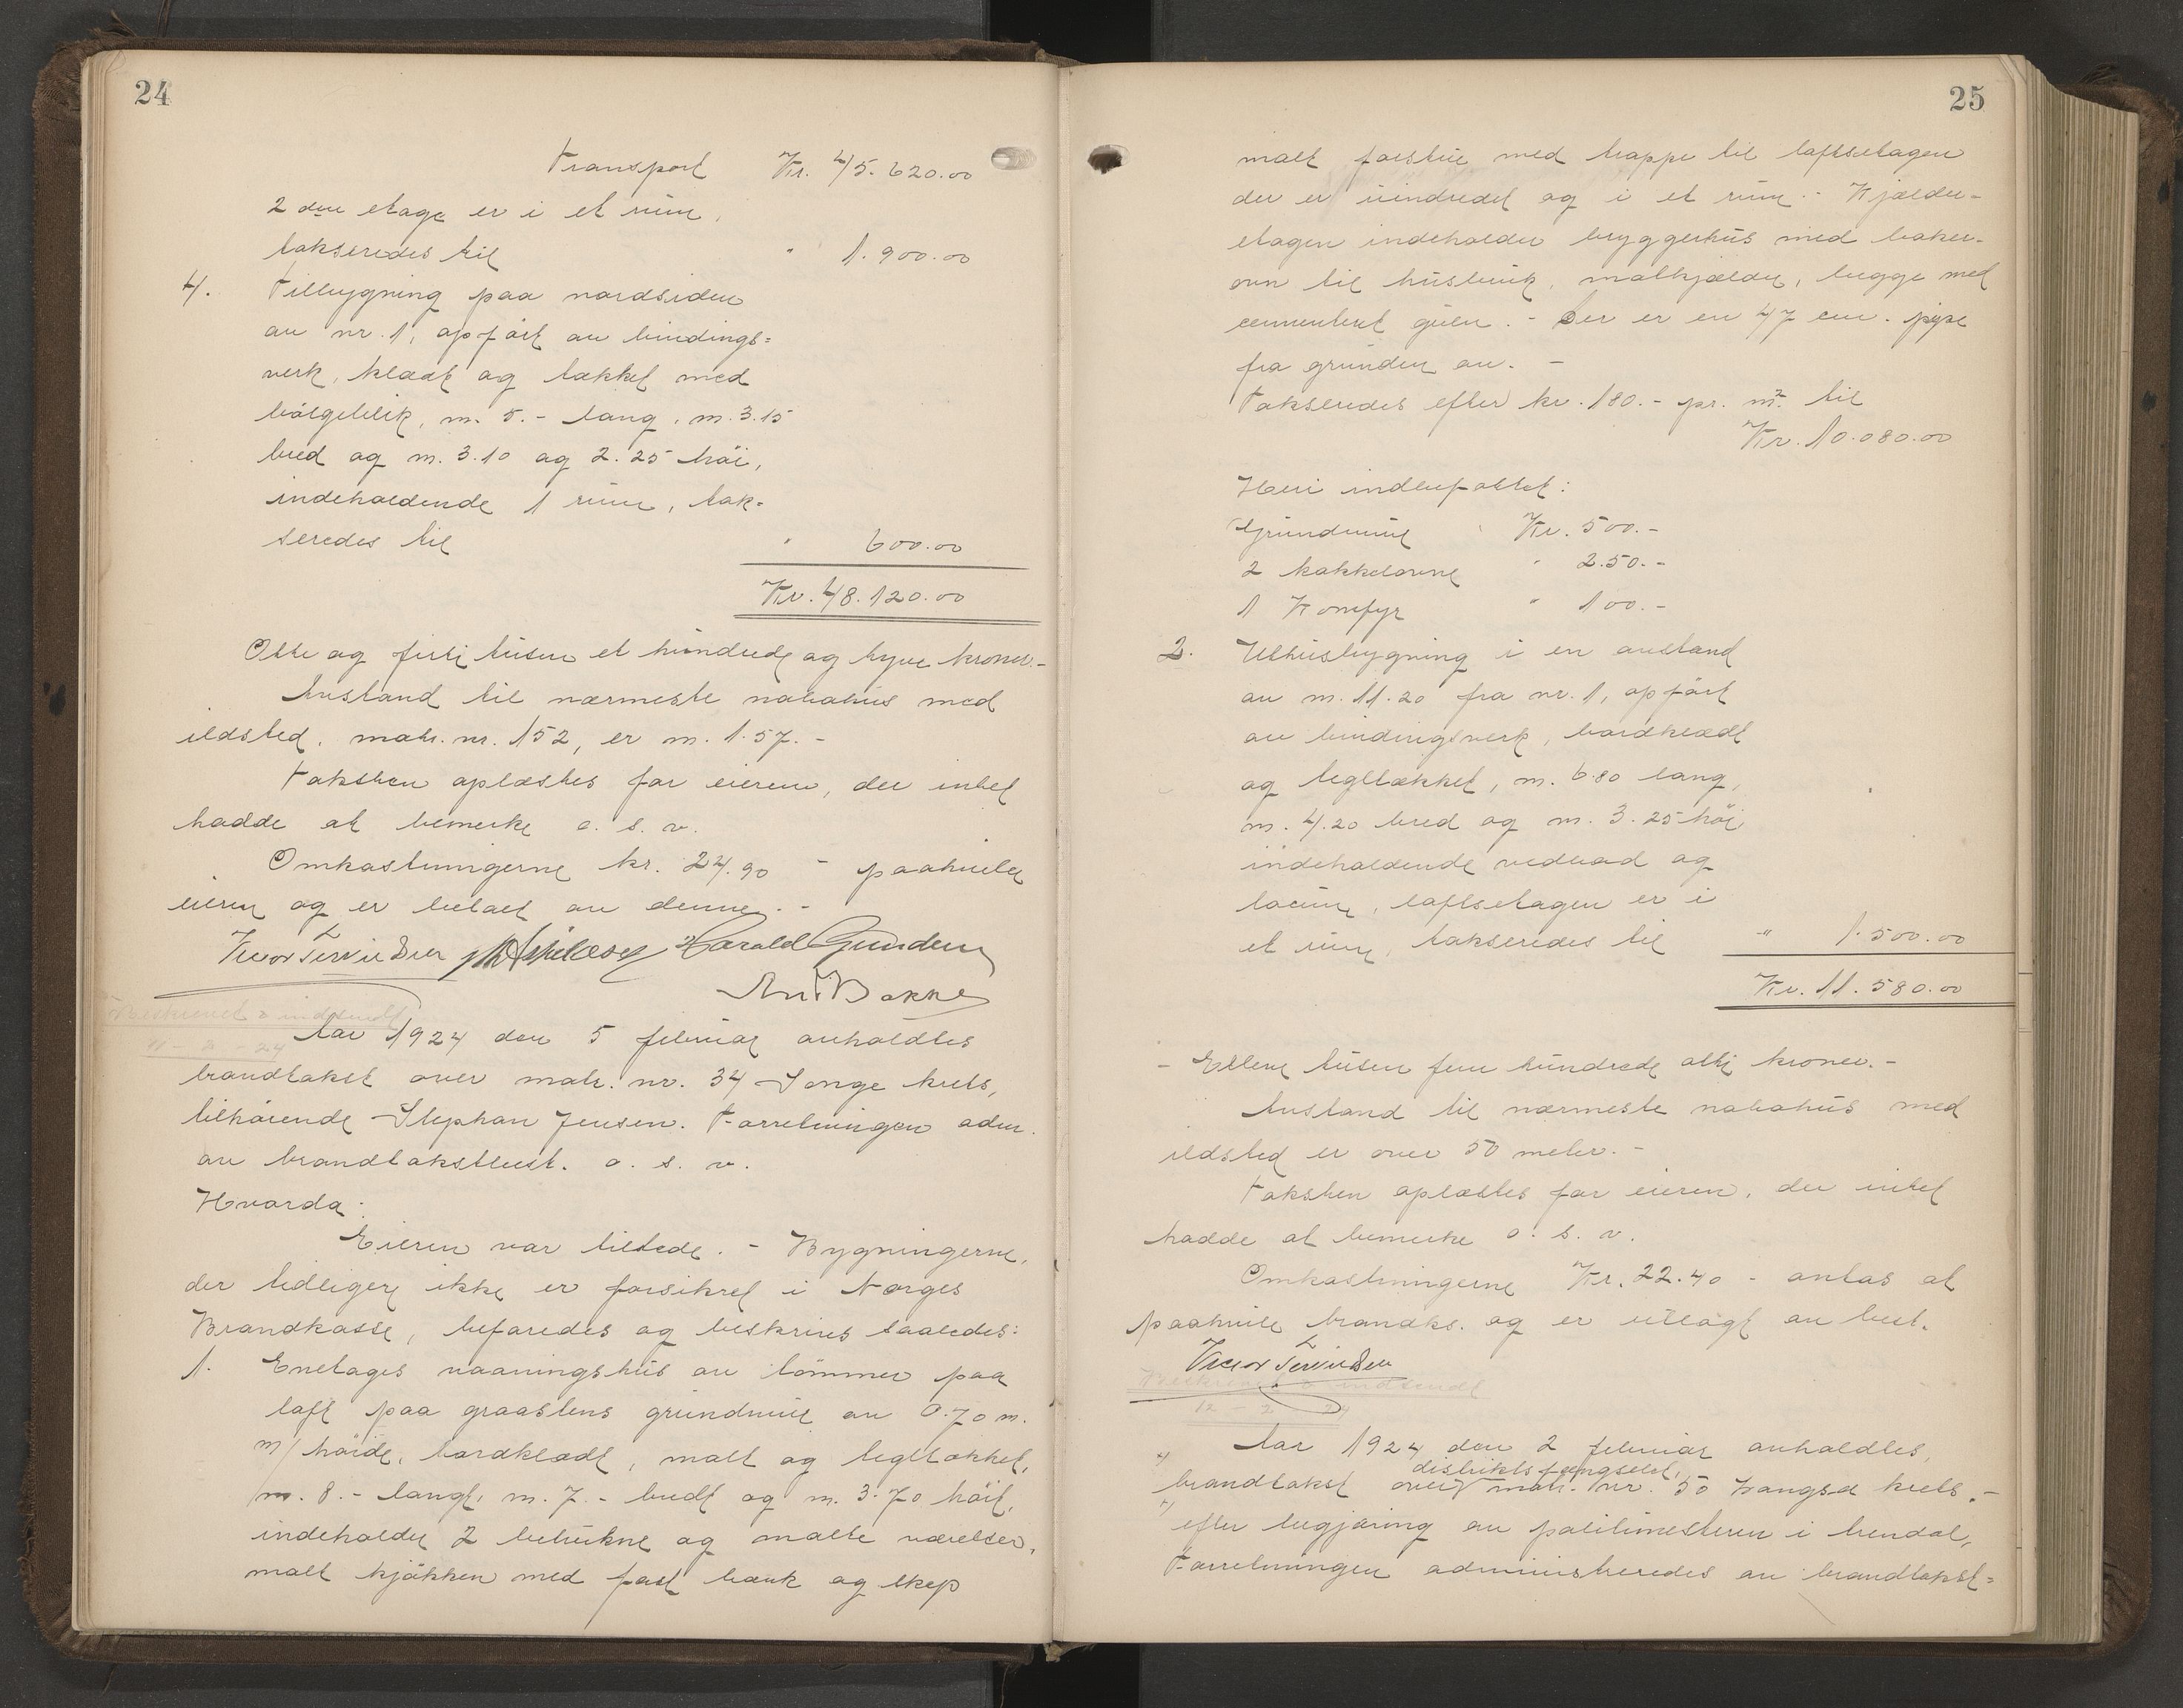 24
Transport Kr. 45.620.00
2den etage er i et rum,
takseredes til " 1.900.00
4. Tilbygning paa nordsiden
av nr. 1, opført av bindings=
verk, klædt og tækket med
bølgeblik, m. 5.- lang, m. 3.15
bred og m. 3.10 og 2.25 høi,
indeholdende 1 rum, tak=
seredes til " 600.00
Kr. 48.120.00
Otte og firti tusen et hundrede og tyve kroner.-
Avstand til nærmeste nabohus med
ildsted, matr. nr. 152, er m. 1.57.-
Taksten oplæstes for eieren, der intet
hadde at bemerke o. s. v.
Omkostningerne kr. 24.90 - paahviler
eieren og er betalt av denne.-
Harald Gundersen
Ant. Bakke
Beskrevet & indsendt
11 - 2 - 24
Aar 1924 den 5 februar avholdtes
brandtakst over matr. nr. 34 Songe krets,
tilhørende Stephan Jensen. Forretningen adm.
av brandtakstbest. o. s. v.
Hvorda:
Eieren var tilstede. - Bygningerne,
der tidligere ikke er forsikret i Norges
Brandkasse, befaredes og beskrives saaledes:
1. Enetages vaaningshus av tømmer paa
loft paa graastens grundmur av 0.70 m.
m/ høide, bordklædt, malt og tegltækket,
m. 8.- langt, m. 7.- bredt og m. 3.70 høit,
indeholder 2 betrukne og malte værelser,
malt kjøkken med fast bænk og skap
25
malt forstue med trappe til loftsetagen
der er uindredet og i et rum.- Kjælder-
etagen indeholder bryggerhus med baker-
ovn til husbruk, matkjælder, begge med
cementert gulv.- Der er en 47 cm. pipe
fra grunden av.-
Takseredes efter kr. 180.- pr. m². til
Kr. 10.080.00
Heri indbefattet:
Grundmur Kr. 500.-
2 kakkelovne " 250.-
1 Komfyr " 100.-
2. Uthusbygning i en avstand
av m. 11.20 fra nr. 1, opført
av bindingsverk, bordklædt
og tegltækket, m. 6.80 lang,
m. 4.20 bred og m. 3.25 høi
indeholdende vedbod og
locum, loftsetagen er i
et rum, takseredes til " 1.500.00
Kr. 11.580.00
- Elleve tusen fem hundrede otti kroner.-
Avstand til nærmeste nabohus med
ildsted er over 50 meter.-
Taksten oplæstes for eieren, der intet
hadde at bemerke o. s. v.
Omkostningerne Kr. 22.40 - antas at
paahvile brandks. og er utlagt av best.
Beskrevet & indsendt
12 - 2 24
Aar 1924 den 2 februar avholdtes
distriktsfængselet,
brandtakst over matr. nr. 50 Kangsa krets.-
efter begjæring av politimesteren i Arendal,
Forretningen administreredes av brandtakst=